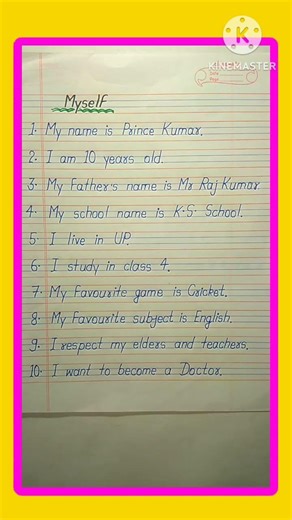 KINEMASTER
Date
Page
Myself
1. My name is Prince Kumar.
2. I am 10 years old.
3. My Father's name is Mr Raj Kumar
4. My school name is K.S. School.
5. I live in UP.
6. I study in class 4.
7. My Favourite game is Cricket.
8. My Favourite subject is English.
9. I respect my elders and teachers.
10. I want to become a Doctor.